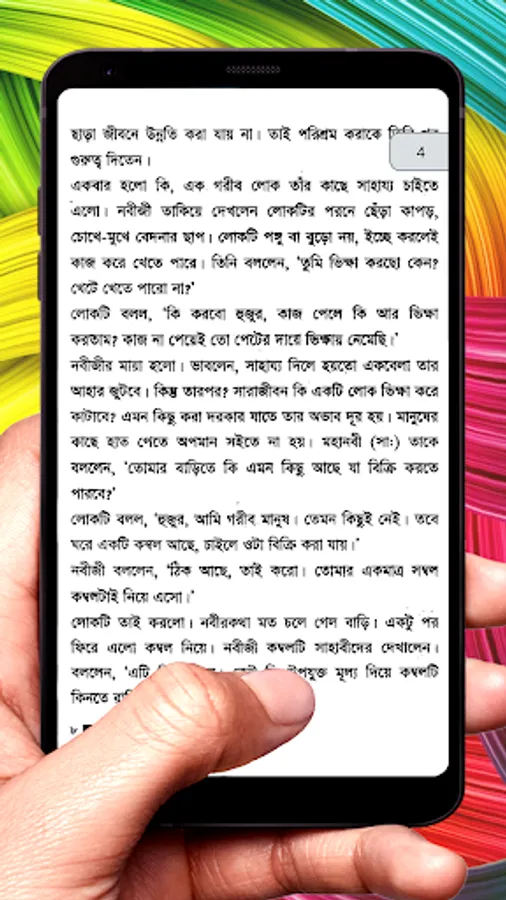 ছাড়া জীবনে উন্নতি করা যায় না। তাই পরিশ্রম করাকে
4
গুরুত্ব দিতেন।
একবার হলো কি, এক গরীব লোক তাঁর কাছে সাহায্য চাইতে
এলো। নবীজী তাকিয়ে দেখলেন লোকটির পরনে ছেঁড়া কাপড়,
চোখে-মুখে বেদনার ছাপ। লোকটি পঙ্গু বা বুড়ো নয়, ইচ্ছে করলেই
কাজ করে খেতে পারে। তিনি বললেন, ‘তুমি ভিক্ষা করছো কেন?
খেটে খেতে পারো না?’
লোকটি বলল, ‘কি করবো হুজুর, কাজ পেলে কি আর ভিক্ষা
করতাম? কাজ না পেয়েই তো পেটের দায়ে ভিক্ষায় নেমেছি।’
নবীজীর মায়া হলো। ভাবলেন, সাহায্য দিলে হয়তো একবেলা তার
আহার জুটবে। কিন্তু তারপর? সারাজীবন কি একটি লোক ভিক্ষা করে
কাটাবে? এমন কিছু করা দরকার যাতে তার অভাব দূর হয়। মানুষের
কাছে হাত পেতে অপমান সইতে না হয়। মহানবী (সাঃ) তাকে
বললেন, ‘তোমার বাড়িতে কি এমন কিছু আছে যা বিক্রি করতে
পারবে?’
লোকটি বলল, ‘হুজুর, আমি গরীব মানুষ। তেমন কিছুই নেই। তবে
ঘরে একটি কম্বল আছে, চাইলে ওটা বিক্রি করা যায়।’
নবীজী বললেন, ‘ঠিক আছে, তাই করো। তোমার একমাত্র সম্বল
কম্বলটাই নিয়ে এসো।’
লোকটি তাই করলো। নবীরকথা মত চলে গেল বাড়ি। একটু পর
ফিরে এলো কম্বল নিয়ে। নবীজী কম্বলটি সাহাবীদের দেখালেন।
বললেন, ‘এটি উপযুক্ত মূল্য দিয়ে কম্বলটি
কিনতে
৮